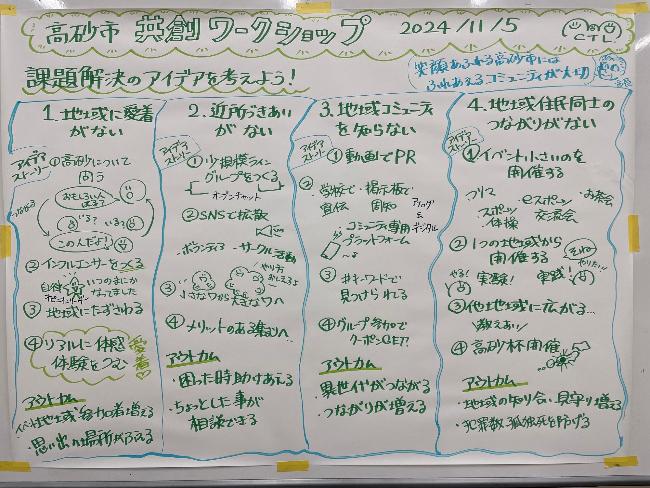 高砂市 共創ワークショップ 2024/11/5
CTL
課題解決のアイデアを考えよう!
笑顔あふれる高砂市には
ふれあえるコミュニティが大切
1.地域に愛着
がない
アイデア
ストーリー
①高砂について
問う
おもしろいん
まち?
いる?
いる?
このんだ!
②インフルエンサーをつくる
いつのまにか
なってました
③地域にたずさわる
④リアルに体感
体験をつむ
愛着
アウトカム
地域参加者増える
思い出の場所が増える
2.近所づきあい
がない
アイデア
ストーリー
①少規模ライン
グループをつくる
オープンチャット
②SNSで拡散
ボランティア・サークル活動
やり方
おしえるよ
③小さなワから大きなワへ
④メリットのある集いへ
アウトカム
・困った時助けあえる
・ちょっとした事が
相談できる
3.地域コミュニティ
を知らない
アイデア
ストーリー
①動画でPR
②学校で・掲示板で
宣伝 周知
アナログ
&
デジタル
コミュニティ専用
プラットフォーム
③#キーワードで
見つけられる
④グループ参加で
クーポンGET!
アウトカム
・異世代がつながる
・つながりが増える
4.地域住民同士の
つながりがない
アイデア
ストーリー
①イベント小さいのを
開催する
・お茶会
・eスポーツ
交流会
スポーツ
体操
②1つの地域から
開催する
それ
やりたい!
やる!
実験! 実践!
③他地域に広がる…
教えあい
④高砂杯開催
アウトカム
・地域の知り合い・見守り増える
・犯罪数孤独死を防げる